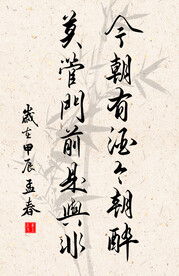 今朝有酒今朝醉
莫管門前是與非
歲在甲辰孟春